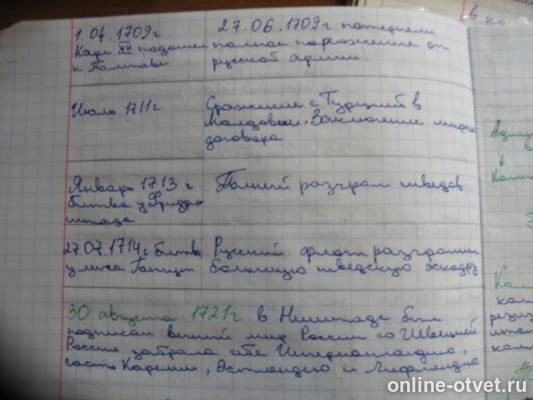 1.04.1709г
Карл XII подошел
к Полтаве
27.06.1709г потерпели
полное поражение от
русской армии.
Июль 1711г
Сражение с Турцией в
Молдовии. Заключение мирн
договора
Январь 1713 г
битва у Фридрих
штада
Полный разгром шведов
27.07.1714г битва
у мыса Гангут
Русский флот разгромил
большую шведскую эскадру
30 августа 1721г в Ништаде был
подписан вечный мир России со Швецией
Россия забрала себе Ингерманландию,
часть Карелии, Эстляндию и Лифляндию
в ко.
в
online-otvet.ru